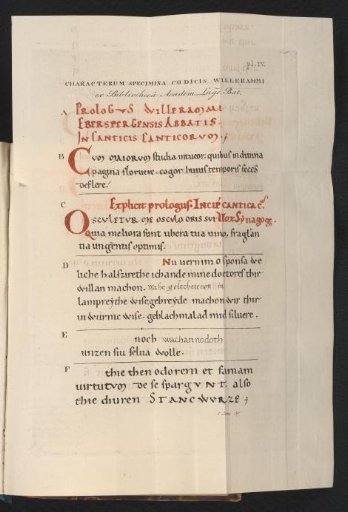 pl. IV.
CHARACTERUM SPECIMINA CODICIS WILLERAMMI
ex Bibliothecâ Academ. Lugd. Bat.
A PROLOGUS WILLERAMMI
EBERSPERGENSIS ABBATIS
IN CANTICIS CANTICORUM
B Cum maiorum studia intueor. quibus in diuina
pagina floruere. cogor huius temporis feces
deflere.
C Explicit prologus. Incip cantica c.
Osculetur me osculo oris sui Uox Synagogę
Quia meliora sunt ubera tua uino, fraglan
tia unguentis optimis.
D Nu uernim o sponsa we
liche halszierthe ich ande mine doctores thir
willan machon.
lampreythe wise gebreyde machon wir thir
in wurme wise. geblachmalad mid siluere.
E noch wachan nodoth
unzen siu selua wolle.
F thie then odorem et famam
uirtutum de se spargunt. also
thie diuren STANCWURZE